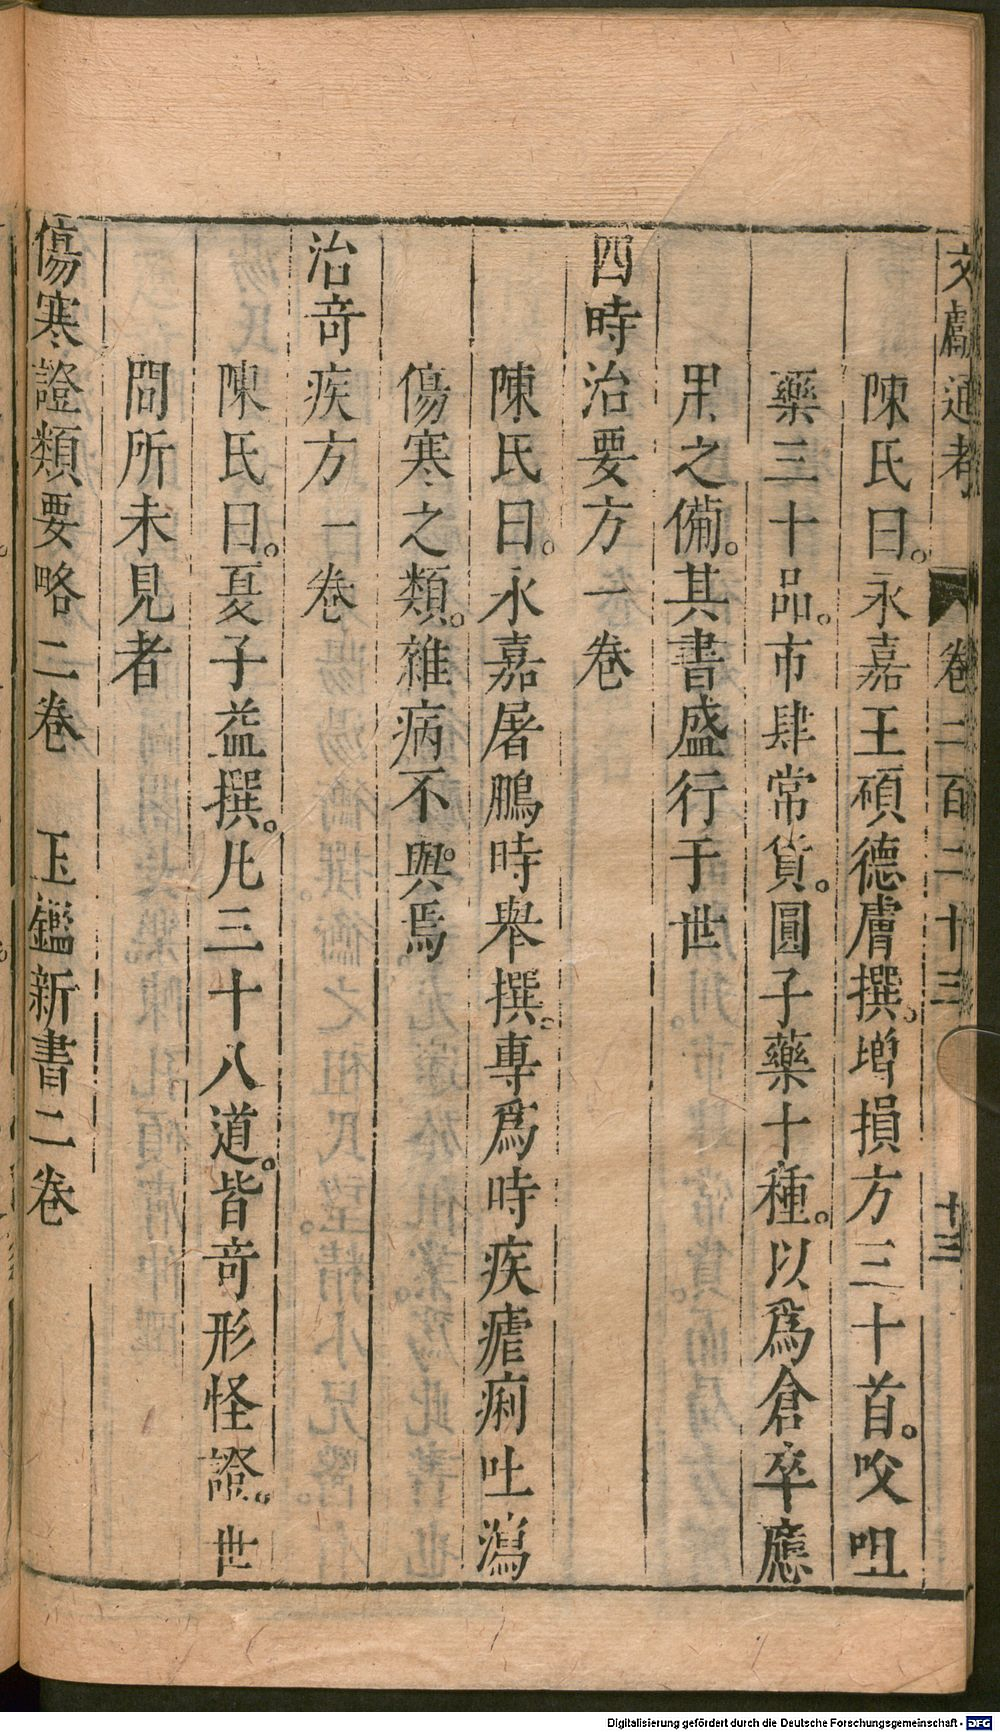 文獻通考 卷二百二十三 十三
陳氏曰。永嘉王碩德膚撰。增損方三十首。咬咀
藥三十品。市肆常貨。圓子藥十種。以爲倉卒應
用之備。其書盛行于世
四時治要方一卷
陳氏曰。永嘉屠鵬時舉撰。專爲時疾瘧痢吐瀉
傷寒之類。雜病不與焉
治奇疾方一卷
陳氏曰。夏子益撰。凡三十八道。皆奇形怪證。世
間所未見者
傷寒證類要略二卷 玉鑑新書二卷
Digitalisierung gefördert durch die Deutsche Forschungsgemeinschaft - DFG